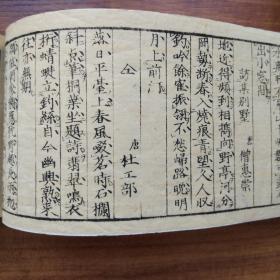 訪某別墅　僧惠崇
地近得頻到相携向野亭河分
岡勢断春入燒痕青望久人収
釣吟餘鶴振翎不愁歸路晩明
月上前汀
仝　唐　杜工部
落日平臺上春風啜茗時石欄
斜点筆桐葉坐題詩翡翠鳴衣
桁蜻蜓立釣絲自今幽興熟来
往亦無期